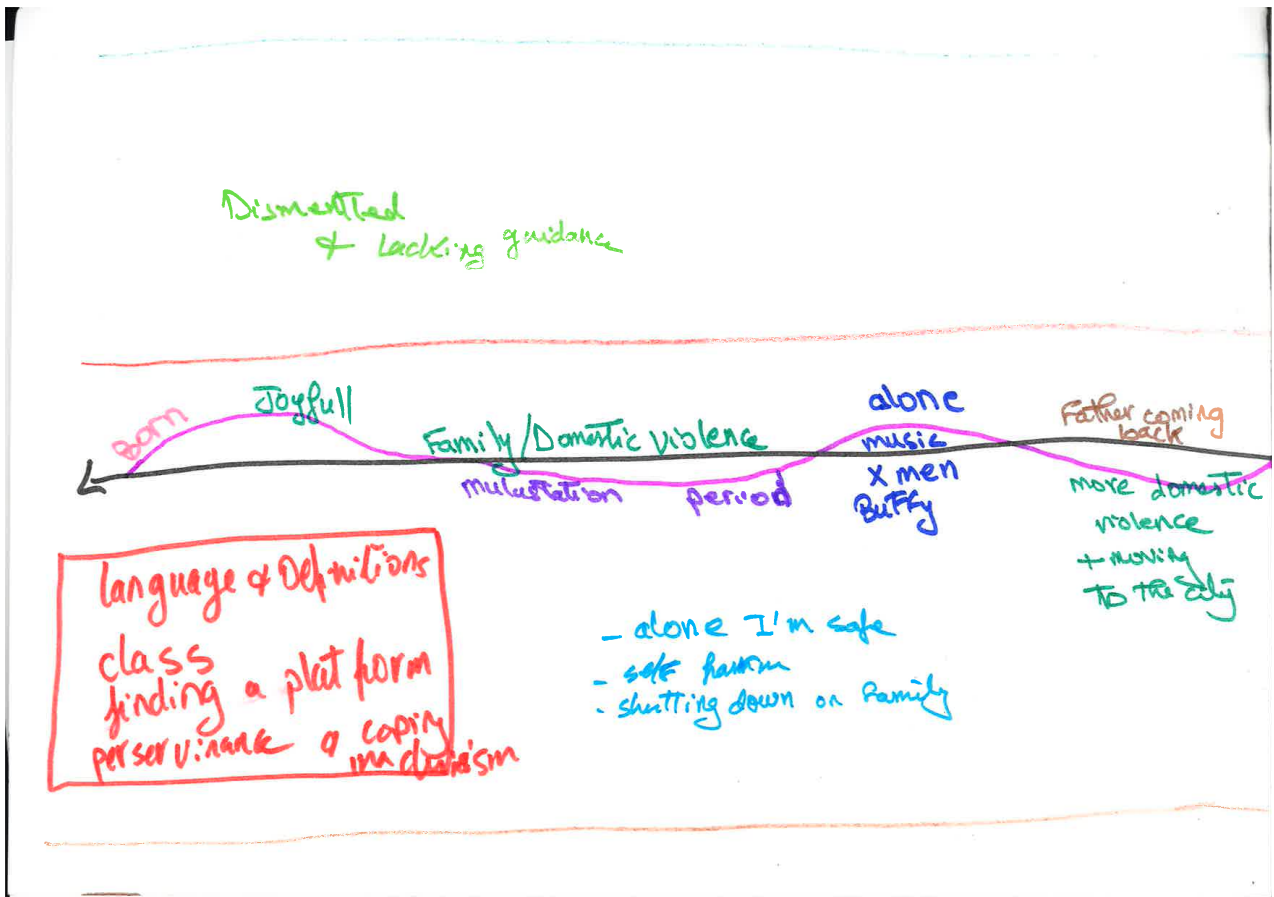 Dismentled
& Lacking guidance
Born
Joyfull
Family/Domestic violence
mulastation period
alone
music
x men
Buffy
Father coming
back
more domestic
violence
+ moving
to the city
language & Definitions
class
finding a platform
perservinance & coping
- alone I'm safe
- self harm
- shutting down on Family